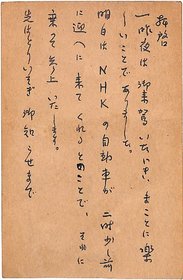 拝啓
一昨夜は御来駕いただき まことに楽
しいことでありました。
明日はNHKの自動車が 二時少し前
に迎へに来てくれるとのことで、それに
乗って参上いたします。
先はとりいそぎ御知らせまで